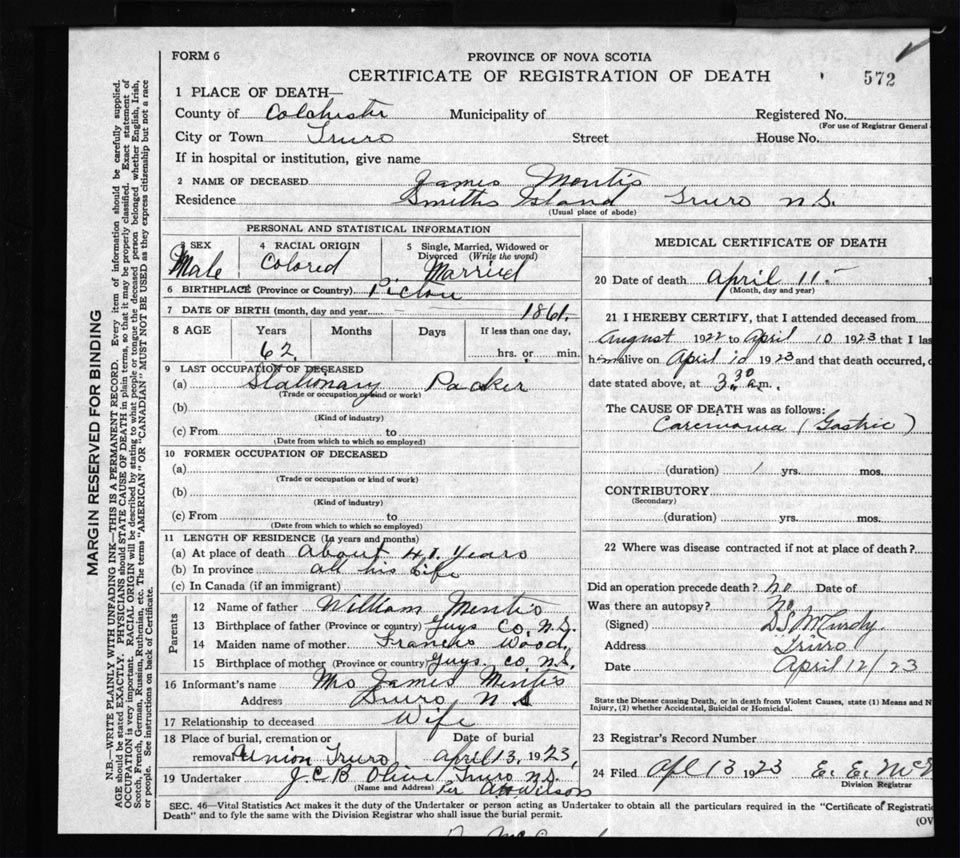 FORM 6
PROVINCE OF NOVA SCOTIA
CERTIFICATE OF REGISTRATION OF DEATH
572
1 PLACE OF DEATH—
County of Colchester Municipality of Registered No.
(For use of Registrar General
City or Town Truro Street House No.
If in hospital or institution, give name
2 NAME OF DECEASED James Mentis
Residence Smiths Island Truro N.S.
(Usual place of abode)
PERSONAL AND STATISTICAL INFORMATION
3 SEX Male
4 RACIAL ORIGIN Colored
5 Single, Married, Widowed or Divorced (Write the word) Married
6 BIRTHPLACE (Province or Country) Pictou
7 DATE OF BIRTH (month, day and year) 1861.
8 AGE Years Months Days If less than one day,
62 hrs. or min.
9 LAST OCCUPATION OF DECEASED
(a) Stationary Packer
(Trade or occupation or kind or work)
(b)
(Kind of industry)
(c) From to
(Date from which to which so employed)
10 FORMER OCCUPATION OF DECEASED
(a)
(Trade or occupation or kind of work)
(b)
(Kind of industry)
(c) From to
(Date from which to which so employed)
11 LENGTH OF RESIDENCE (In years and months)
(a) At place of death about 41 Years
(b) In province all his life
(c) In Canada (if an immigrant)
Parents
12 Name of father William Mentis
13 Birthplace of father (Province or country) Guys Co. N.S.
14 Maiden name of mother Francis Wood
15 Birthplace of mother (Province or country) Guys. Co. N.S.
16 Informant's name Mrs James Mentis
Address Truro N S
17 Relationship to deceased Wife
18 Place of burial, cremation or Date of burial
removal Union Truro April 13, 1923
19 Undertaker J.C.B. Olive Truro N.S.
(Name and Address) Per Wilson
MEDICAL CERTIFICATE OF DEATH
20 Date of death April 11
(Month, day and year)
21 I HEREBY CERTIFY, that I attended deceased from
August 1922 to April 10 1923 that I las
him alive on April 10 1923 and that death occurred,
date stated above, at 3.30 a.m.
The CAUSE OF DEATH was as follows:
Carcinoma (Gastric)
(duration) 1 yrs. mos.
CONTRIBUTORY
(Secondary)
(duration) yrs. mos.
22 Where was disease contracted if not at place of death?
Did an operation precede death? no Date of
Was there an autopsy? No
(Signed) McCurdy
Address Truro
Date April 12/23
State the Disease causing Death, or in death from Violent Causes, state (1) Means and N
Injury, (2) whether Accidental, Suicidal or Homicidal.
23 Registrar's Record Number
24 Filed Apl 13 1923 E. E.
Division Registrar
SEC. 46—Vital Statistics Act makes it the duty of the Undertaker or person acting as Undertaker to obtain all the particulars required in the "Certificate of Registratio
Death" and to fyle the same with the Division Registrar who shall issue the burial permit.
(OV
MARGIN RESERVED FOR BINDING
N.B.—WRITE PLAINLY WITH UNFADING INK—THIS IS A PERMANENT RECORD. Every item of information should be carefully supplied.
AGE should be stated EXACTLY. PHYSICIANS should STATE CAUSE OF DEATH in plain terms, so that it may be properly classified. Exact statement of
OCCUPATION is very important. RACIAL ORIGIN will be described by stating to what people or tongue the deceased person belonged whether English, Irish,
Scotch, French, German, Russian, Ruthenian, etc. The terms "AMERICAN" OR "CANADIAN" MUST NOT BE USED as they express citizenship but not a race
or people. See instructions on back of Certificate.